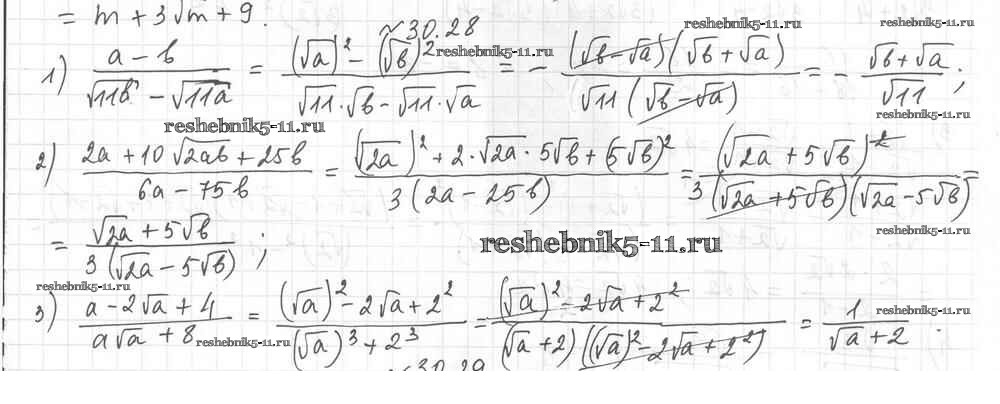 = m + 3√m + 9.
reshebnik5-11.ru
№30.28
reshebnik5-11.ru
reshebnik5-11.ru
1) (a - b)/(√11b - √11a) = ((√a)² - (√b)²)/(√11·√b - √11·√a) = - ((√b - √a)(√b + √a))/(√11(√b - √a)) = - (√b + √a)/√11;
reshebnik5-11.ru
reshebnik5-11.ru
2) (2a + 10√2ab + 25b)/(6a - 75b) = ((√2a)² + 2·√2a·5√b + (5√b)²)/(3(2a - 25b)) = (√2a + 5√b)²/(3(√2a + 5√b)(√2a - 5√b)) =
= (√2a + 5√b)/(3(√2a - 5√b));
reshebnik5-11.ru
reshebnik5-11.ru
reshebnik5-11.ru
3) (a - 2√a + 4)/(a√a + 8) = ((√a)² - 2√a + 2²)/((√a)³ + 2³) = ((√a)² - 2√a + 2²)/((√a + 2)((√a)² - 2√a + 2²)) = 1/(√a + 2).
reshebnik5-11.ru
№30.29